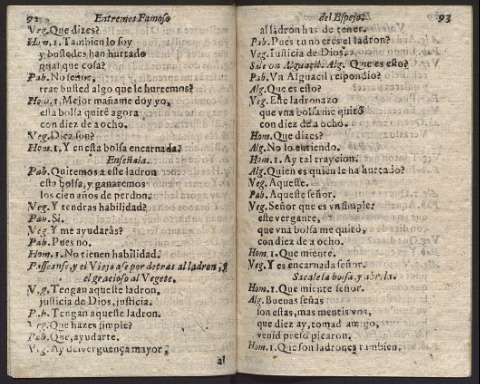 92 Entremes Famoso
Veg. Que dizes?
Hom. 1. Tambien lo soy
y ustedes han hurtado
qual que cosa?
Pab. No señor,
trae usted algo que le hurtemos?
Hom. 1. Mejor mañana doy yo,
esta bolsa quitè agora
con diez de a ocho.
Veg. Diez son?
Hom. 1. Y en esta bolsa encarnada?
Enseñala.
Pab. Quitemos a este ladron
esta bolsa, y ganaremos
los cien años de perdon.
Veg. Y tendras habilidad?
Pab. Si.
Veg. Y me ayudaràs?
Pab. Pues no.
Hom. 1. No tienen habilidad.
Passeanse, y el Viejo ase por detras al ladron, y
el gracioso al Vegete.
Veg. Tengan aqueste ladron,
justicia de Dios, justicia.
Pab. Tengan aqueste ladron.
Veg. Que hazes simple?
Pab. Que, ayudarte.
Veg. Ay desverguença mayor,
al
del Espejo. 93
al ladron has de tener.
Pab. Pues tu no eres el ladron?
Veg. Iusticia de Dios.
Sale un Alguacil. Alg. Que es esto?
Pab. Vn Alguacil respondio?
Alg. Que es esto?
Veg. Este ladronazo
que vna bolsa me quitò
con diez de a ocho.
Hom. Que dizes?
Alg. No lo entiendo.
Hom. 1. Ay tal traycion.
Alg. Quien es quien le ha hurtado?
Veg. Aqueste.
Pab. Aqueste señor.
Veg. Señor que es vn simple:
este vergante,
que vna bolsa me quitò,
con diez de a ocho.
Hom. 1. Que miente.
Veg. Y es encarnada señor.
Sacale la bolsa, y
Hom. 1. Que miente señor.
Alg. Buenas señas
son estas, mas mentis vos,
que diez ay, tomad amigo,
venid preso picaron.
Hom. 1. Que son ladrones tambien.